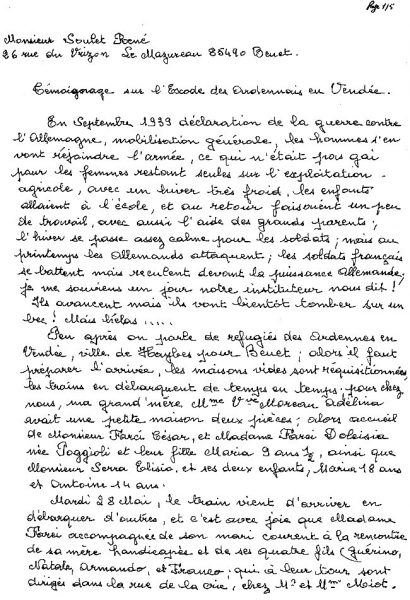 Page 1/5
Monsieur Soulet René
26 rue du Vrizon Le Mazureau 85490 Benet.
Témoignage sur l'Exode des Ardennais en Vendée.
En Septembre 1939 déclaration de la guerre contre
l'Allemagne, mobilisation générale, les hommes s'en
vont rejoindre l'armée, ce qui n'était pas gai
pour les femmes restant seules sur l'exploitation
agricole, avec un hiver très froid, les enfants
allaient à l'école, et au retour faisaient un peu
de travail, avec aussi l'aide des grands parents;
l'hiver se passe assez calme pour les soldats; mais au
printemps les Allemands attaquent; les soldats français
se battent mais reculent devant la puissance Allemande,
je me souviens un jour notre instituteur nous dit!
Ils avancent mais ils vont bientôt tomber sur un
bec! Mais hélas .....
Peu après on parle de refugiés des Ardennes en
Vendée, ville de Haybes pour Benet; alors il faut
préparer l'arrivée, les maisons vides sont réquisitionnées
les trains en débarquent de temps en temps; pour chez
nous, ma grand'mère Mme Vve Moreau Adélina
avait une petite maison deux pièces; alors accueil
de Monsieur Farci César, et Madame Farci
née Poggioli et leur fille Maria 9 ans ½, ainsi que
Monsieur Serra Elisio, et ses deux enfants, Maria 18 ans
et Antoine 14 ans.
Mardi 28 Mai, le train vient d'arriver en
débarquer d'autres, et c'est avec joie que Madame
Farci accompagnée de son mari courent à la rencontre
de sa mère handicapée et de ses quatre fils (Guérino,
Natale, Armando, et Franco; qui à leur tour sont
dirigés dans la rue de la crie, chez Mr et Mme Miot.